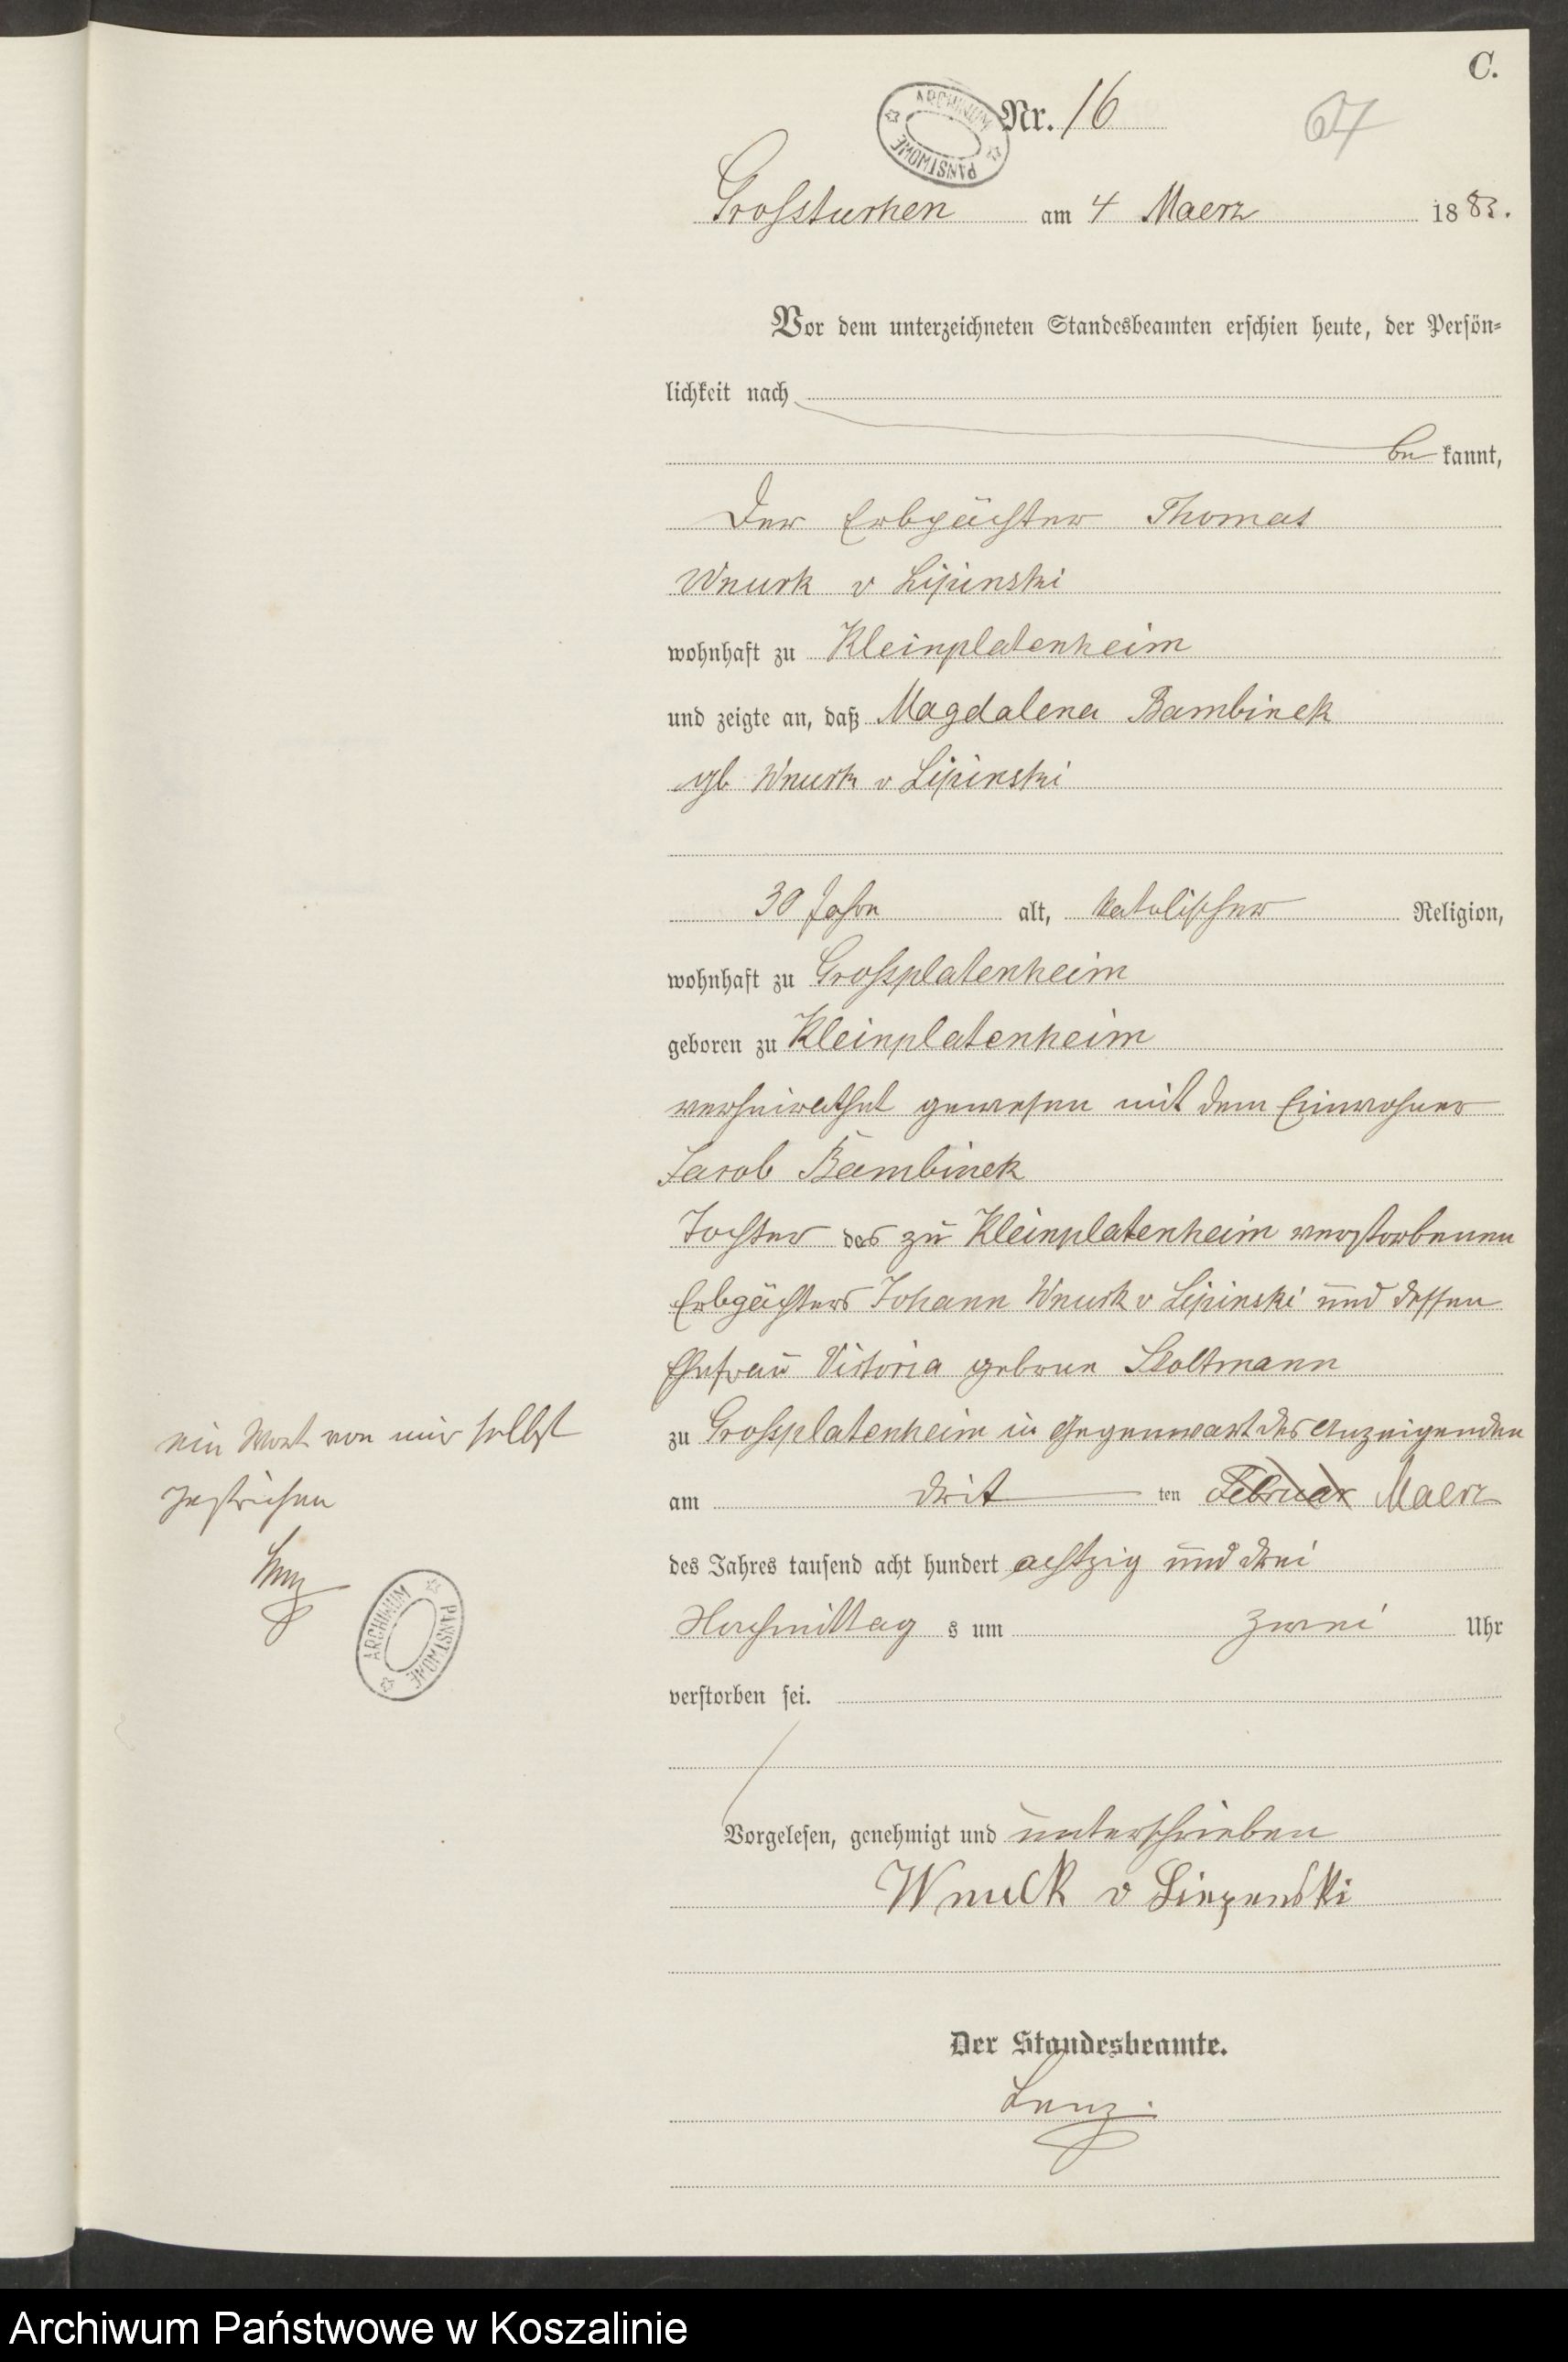 C.
ARCHIWUM PAŃSTWOWE
Nr. 16
67
Grossturhen am 4 Maerz 1883.
Vor dem unterzeichneten Standesbeamten erschien heute, der Persön-
lichkeit nach
be kannt,
der Erbpächter Thomas
Wnuck v Lipinski
wohnhaft zu Kleinplatenheim
und zeigte an, daß Magdalena Bambinek
gb Wnuck v Lipinski
30 Jahre alt, katolischer Religion,
wohnhaft zu Grossplatenheim
geboren zu Kleinplatenheim
verheirathet gewesen mit dem Einwohner
Jacob Bambinek
Tochter des zu Kleinplatenheim verstorbenen
Erbpächters Johann Wnuck v Lipinski und dessen
Ehefrau Victoria geborne Stoltmann
zu Grossplatenheim in Gegenwart des Anzeigenden
am drit ten Februar Maerz
des Jahres tausend acht hundert achtzig und drei
Nachmittag s um zwei Uhr
verstorben sei.
ein Wort von mir selbst
gestrichen
Lenz
ARCHIWUM PAŃSTWOWE
Vorgelesen, genehmigt und unterschrieben
Wnuck v Liepenski
Der Standesbeamte.
Lenz.
Archiwum Państwowe w Koszalinie